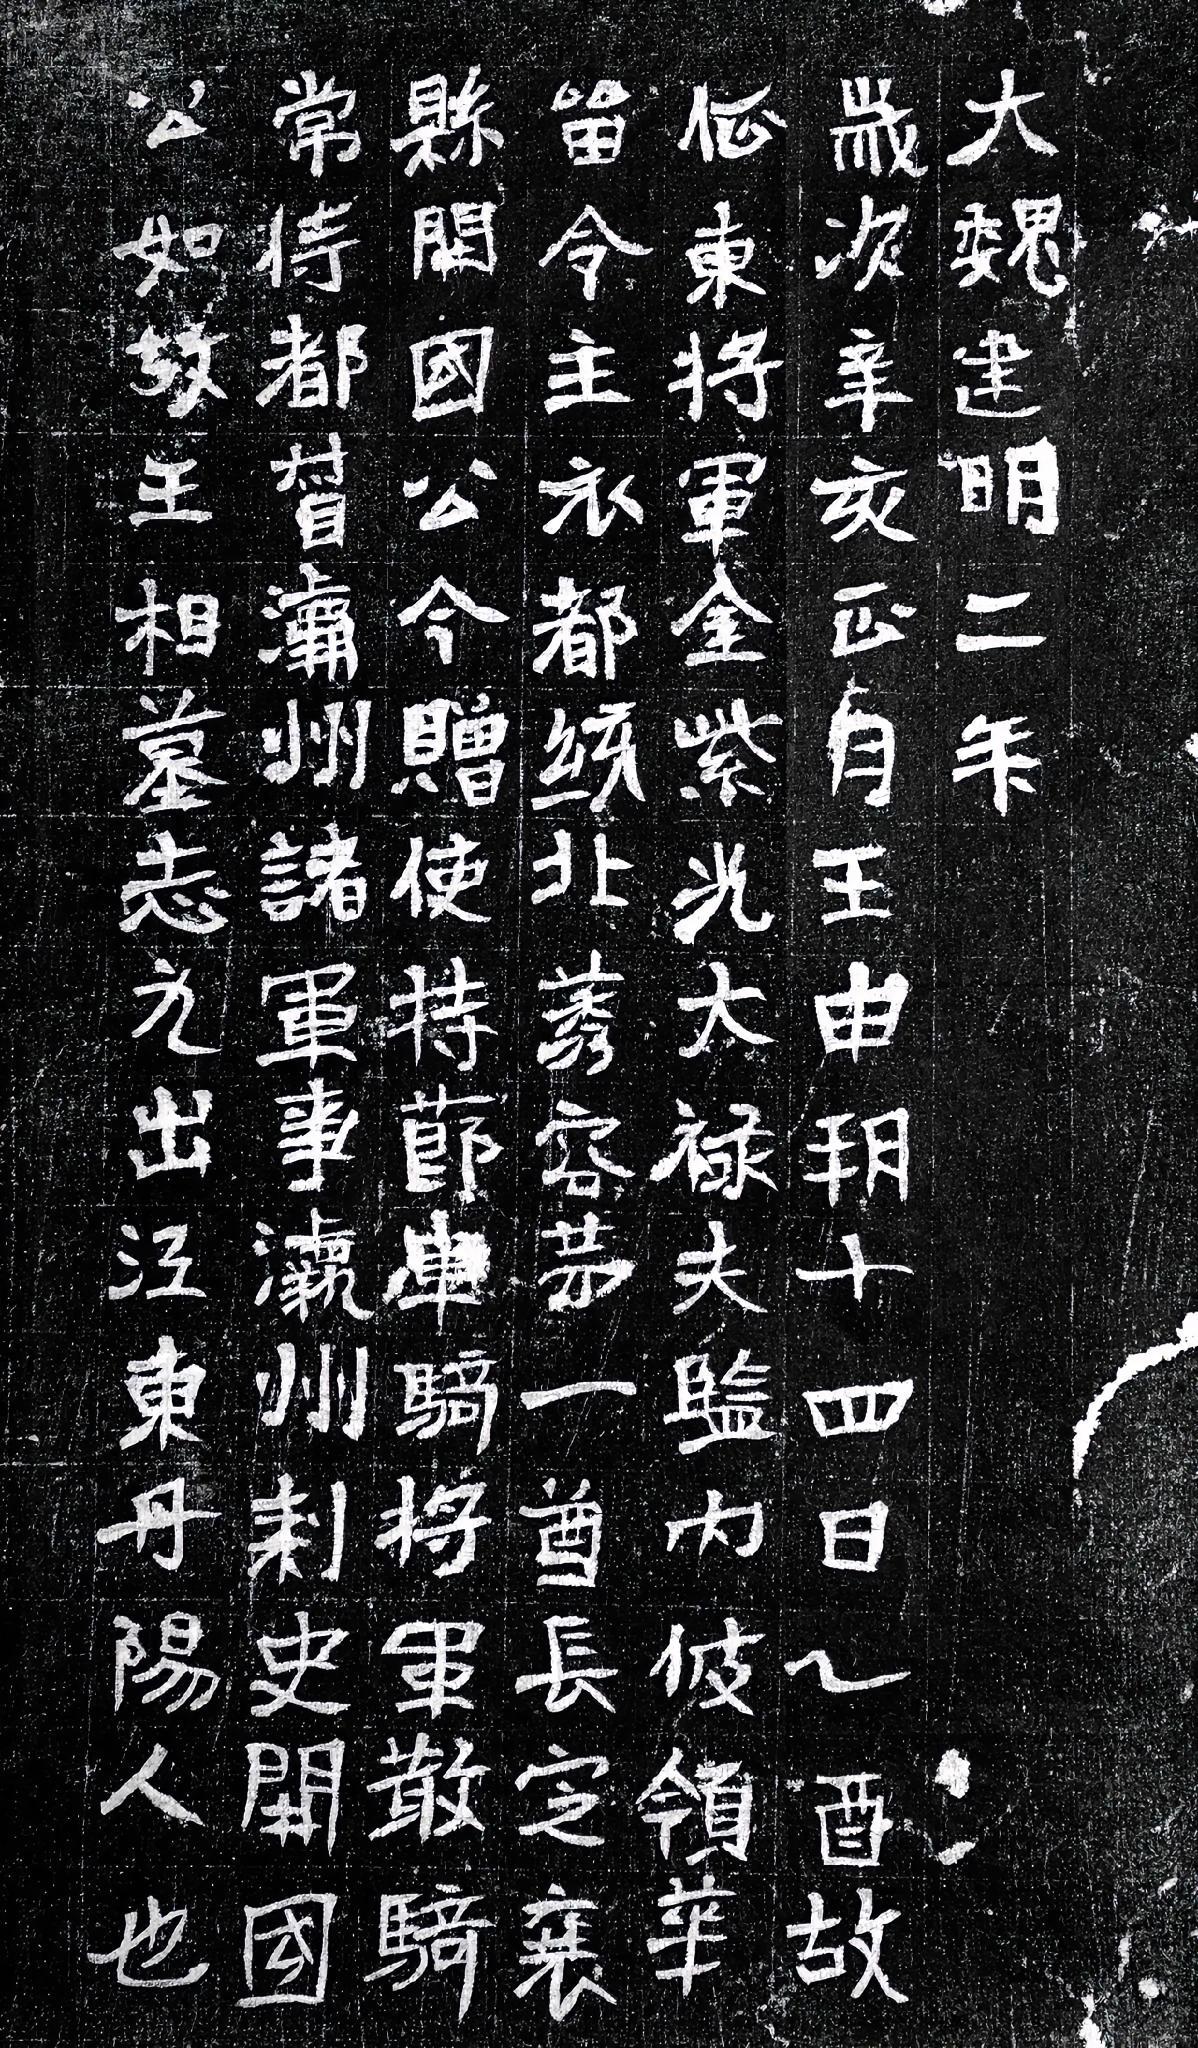 大魏建明二年
歲次辛亥正月壬申朔十四日乙酉故
征東將軍金紫光大祿夫監內假領華
畄令主衣都統北秀容第一酋長定襄
縣開國公今贈使持節車騎將軍散騎
常侍都督瀛州諸軍事瀛州刺史開國
公如故王相墓志元出江東丹陽人也